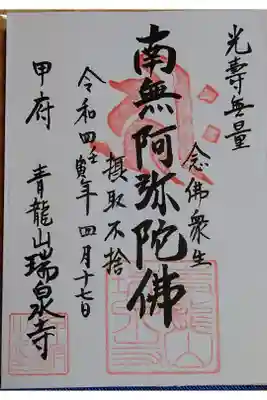 光壽無量
念佛衆生
南無阿弥陀佛
摂取不捨
令和四壬寅年四月十七日
甲府 青龍山瑞泉寺